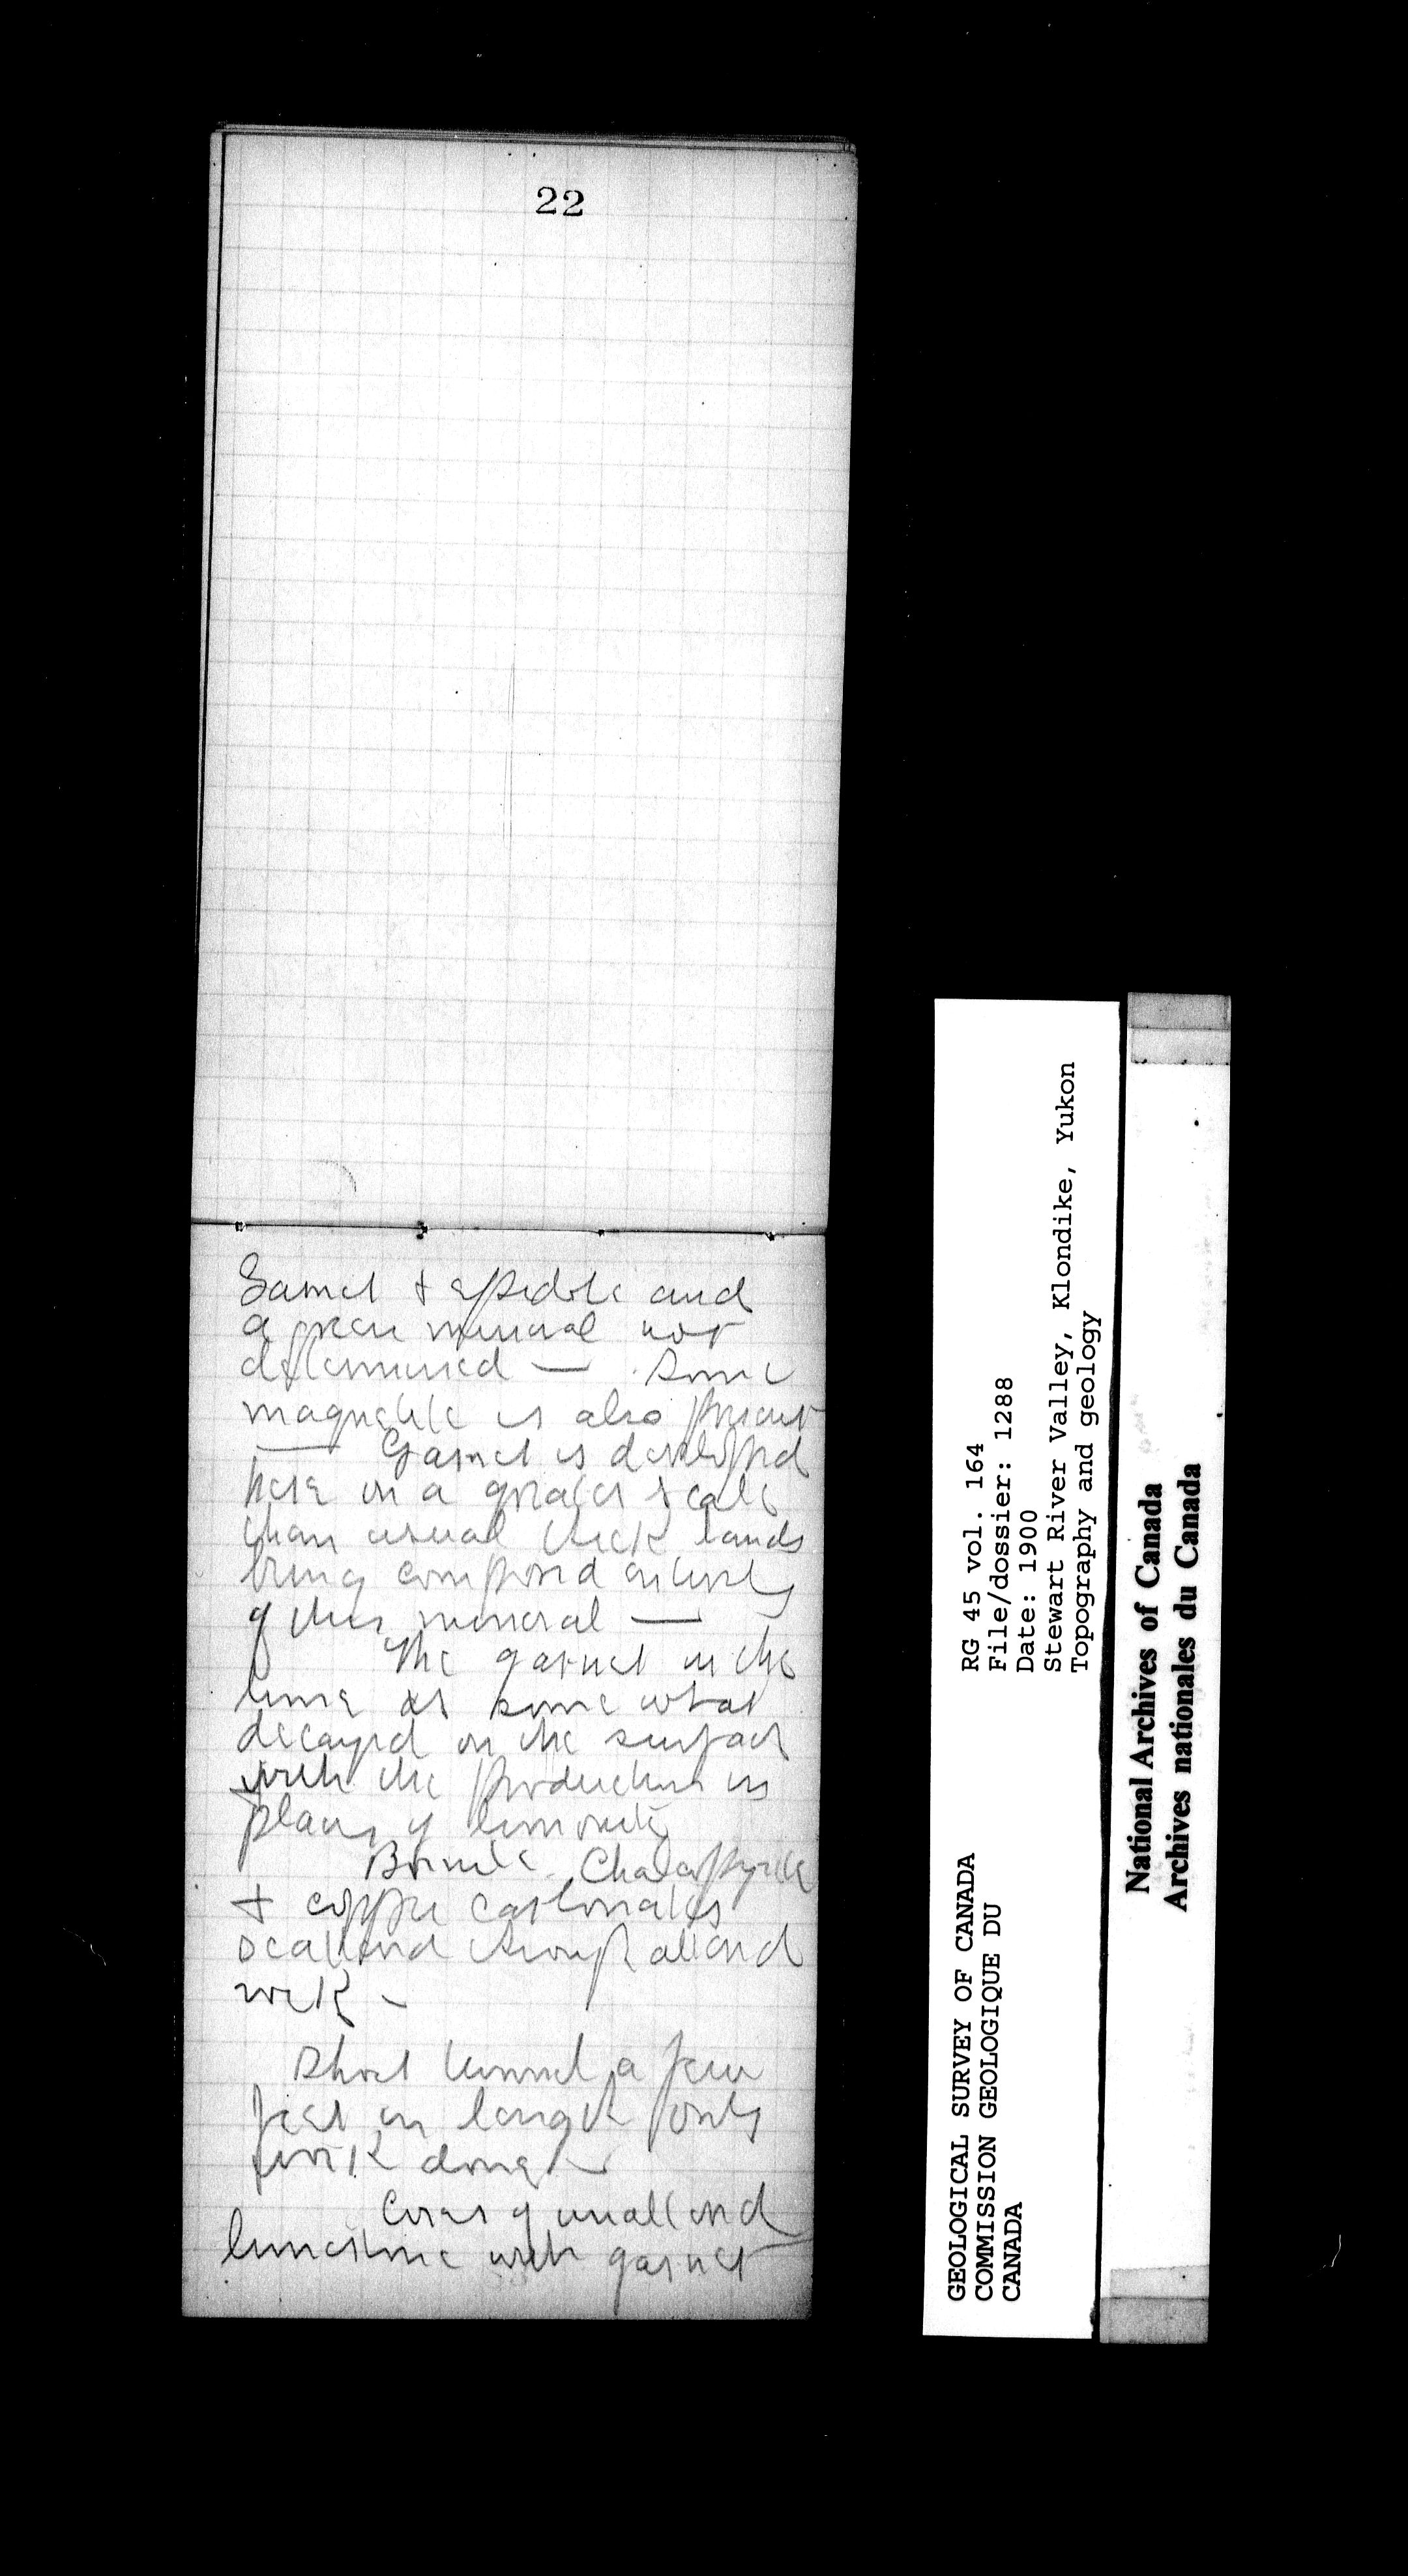 22
Garnet & epidote and
a green mineral not
determined — some
magnetite is also present
— Garnet is developed
here on a greater scale
than usual thick bands
being composed entirely
of this mineral —
The garnet in the
lime is some what
decayed on the surface
with the production in
places of limonite
Bornite Chalcopyrite
& copper carbonates
scattered through altered
rock –
Short tunnel a few
feet in length only
work done —
Cores of unaltered
limestone with garnet
GEOLOGICAL SURVEY OF CANADA
COMMISSION GEOLOGIQUE DU
CANADA
RG 45 vol. 164
File/dossier: 1288
Date: 1900
Stewart River Valley, Klondike, Yukon
Topography and geology
National Archives of Canada
Archives nationales du Canada